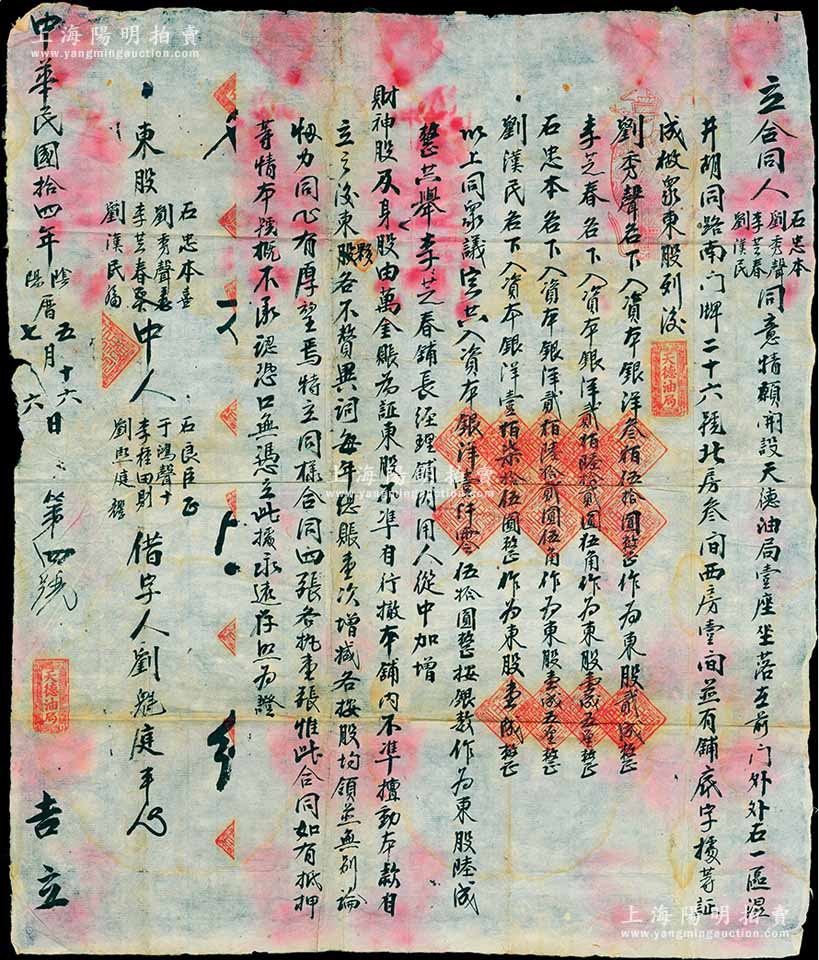 上海陽明拍賣
www.yangmingauction.com
立合同人
石忠本
劉秀聲
李芝春
劉漢民
同意情願開設天德油局壹座坐落在前门外外右一區濕
井胡同路南门牌二十六號北房叁间西房壹间並有鋪底字據等証
成做眾東股列後
天德油局
劉秀聲名下入資本銀洋叁佰伍拾圓整作為東股貳成整
李芝春名下入資本銀洋貳佰陸拾貳圓伍角作為東股壹成五厘整
石忠本名下入資本銀洋貳佰陸拾貳圓伍角作為東股壹成五厘整
劉漢民名下入資本銀洋壹佰柒拾伍圓整作為東股壹成整
以上同眾議定共入資本銀洋壹仟零伍拾圓整按銀数作為東股陸成
整共舉李芝春鋪長經理鋪内用人從中加增
財神股及身股由萬金賬為証東股不準自行撤本鋪内不準擅動本款自
立之後東股夥各不贅異詞每年總賬壹次增減各按股均領並無别論
物力同心有厚望焉特立同樣合同四張各执壹張惟此合同如有抵押
等情本號概不承認恐口無憑立此據永遠存照為證
東股
石忠本
劉秀聲
李芝春
劉漢民
中人
石良臣
于鴻聲十
李桂田
劉熙庭
借字人劉熙庭
中華民國拾四年
陰
陽
曆
五月十六日
七 六
第四號
天德油局
吉立
上海陽明拍賣
www.yangmingauction.com
上海陽明拍賣
www.yangmingauction.com